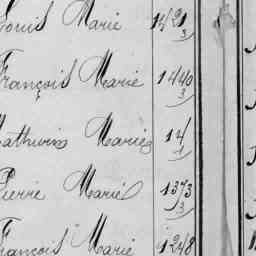 Louis Marie 1421
3
François Marie 1440
3
Mathurin Marie 14
1
Pierre Marie 1373
3
François Marie 1248